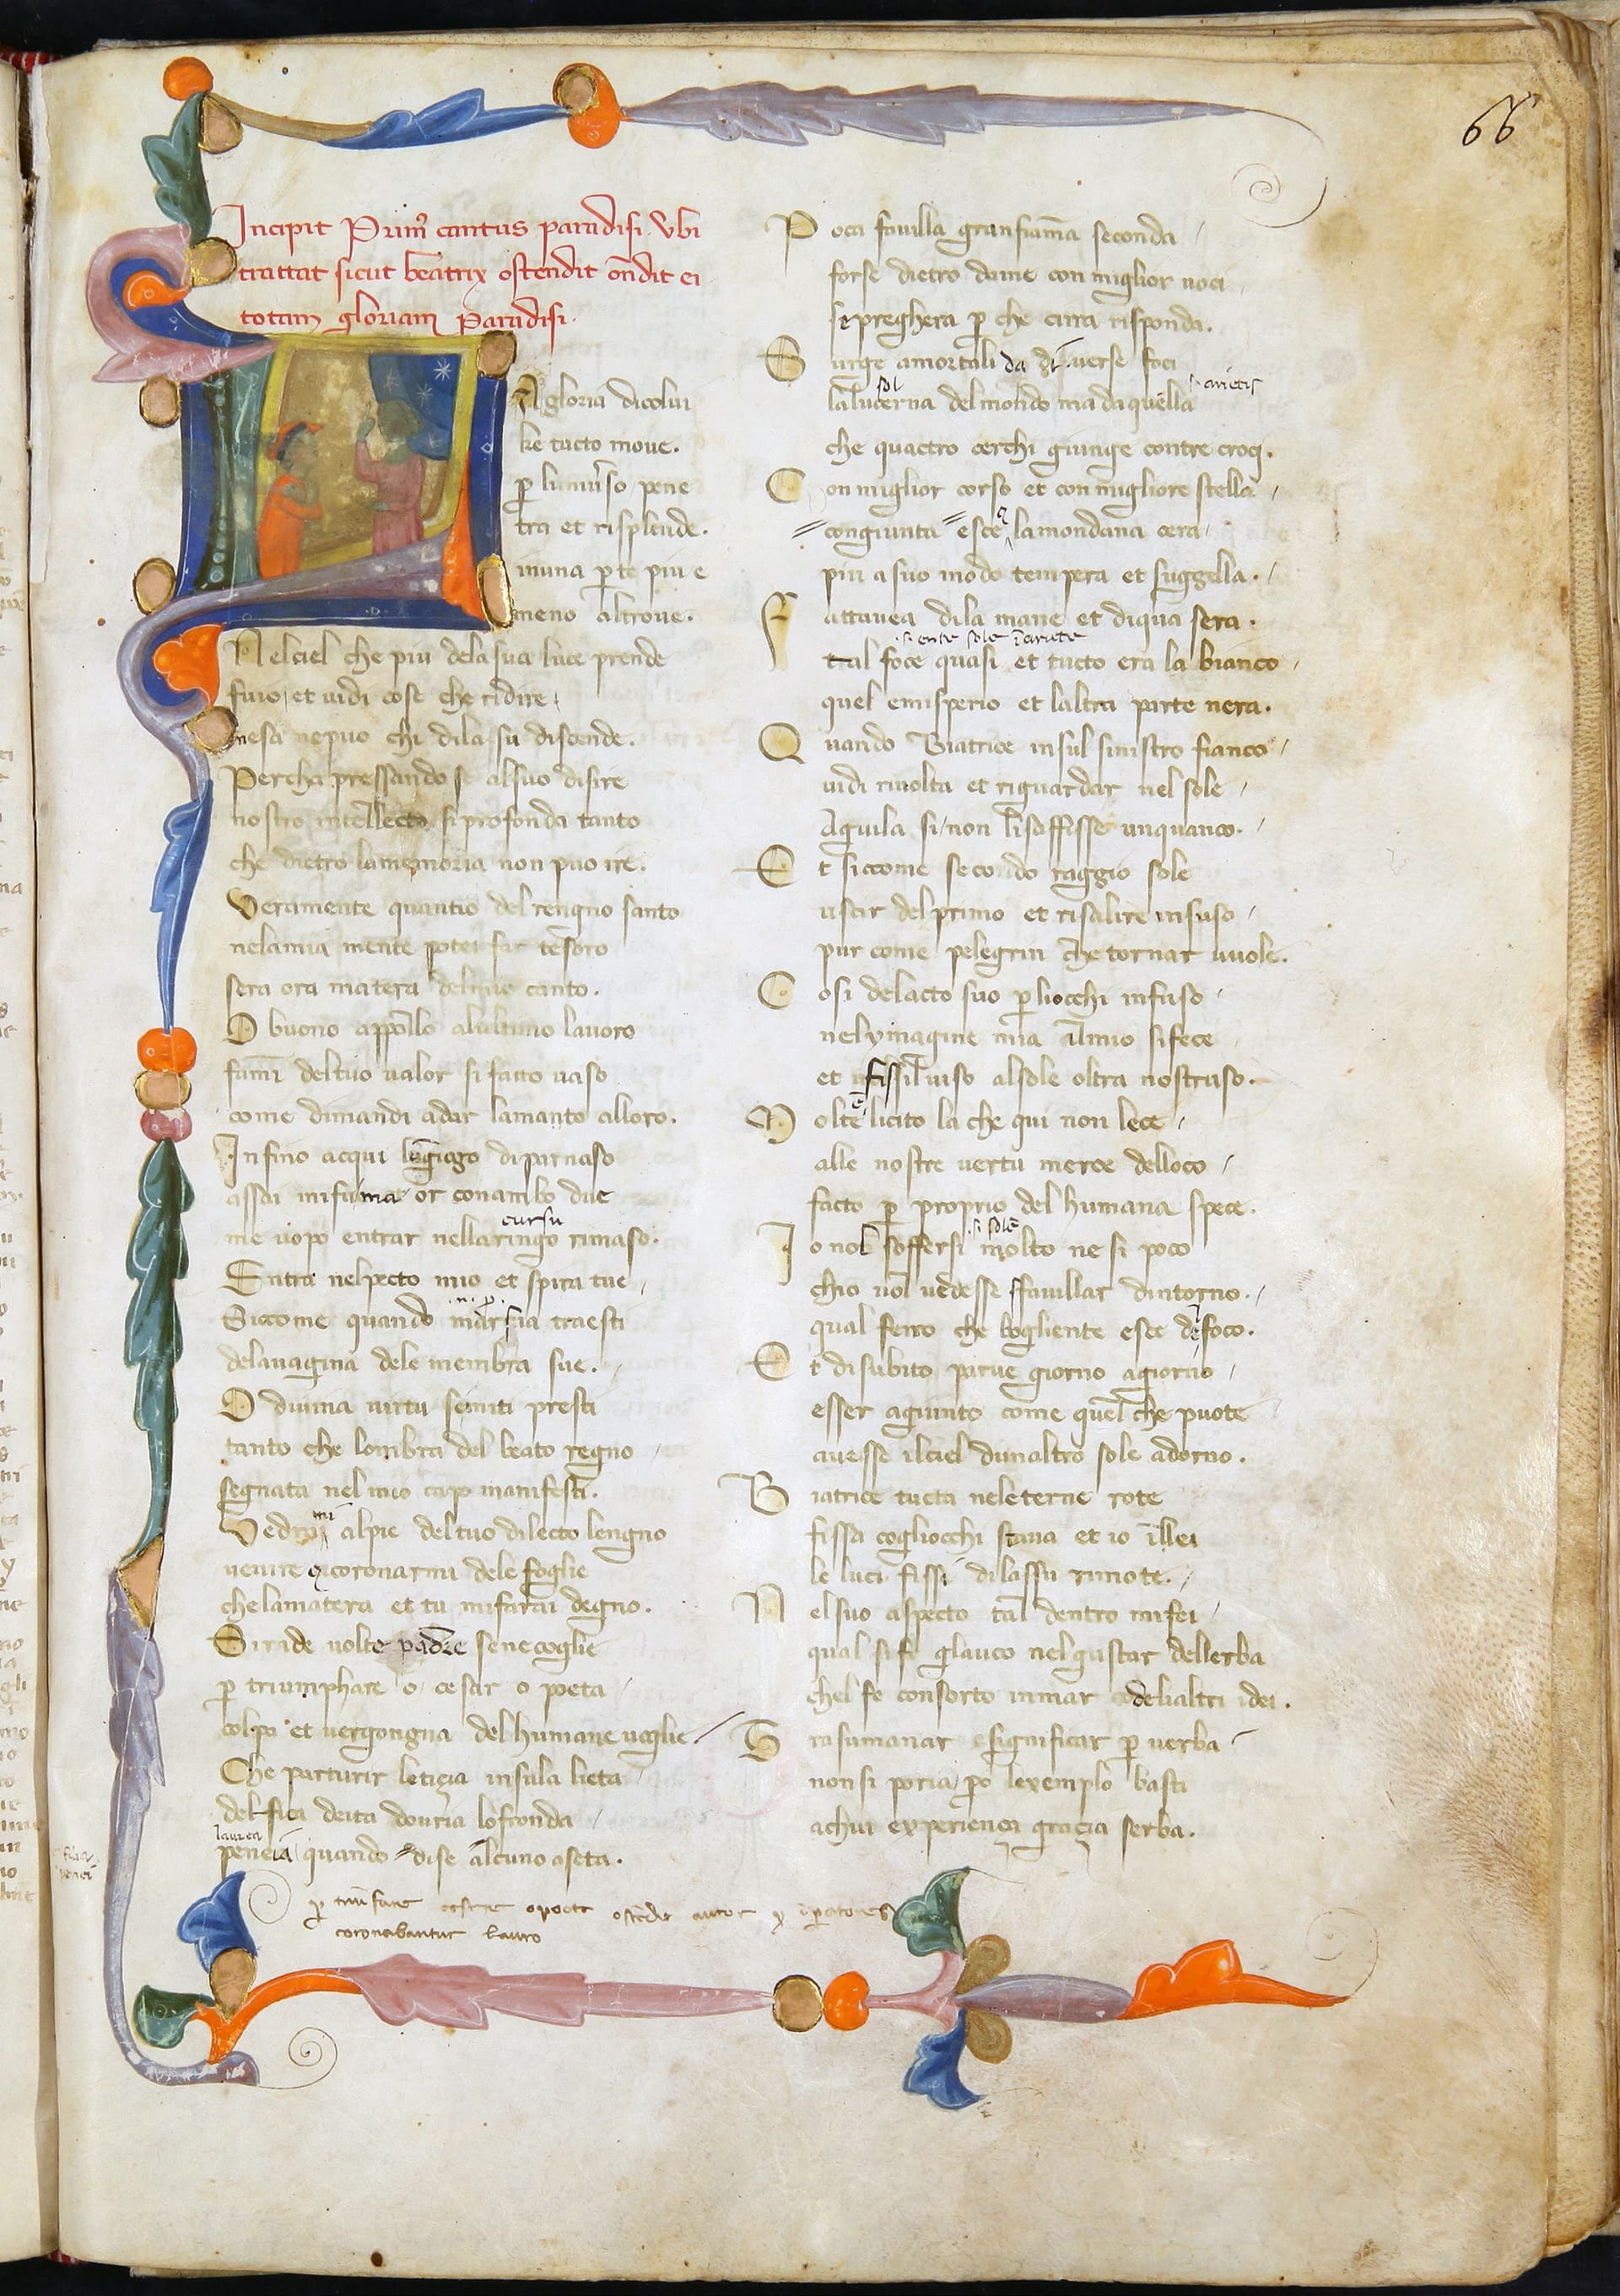 66
Incipit Prim9 cantus paradisi. Vbi
trattat sicut beatrix ostendit ondit ei
totam gloriam Paradisi.
A gloria dicolui
ke tucto moue.
p luniuerso pene
tra et risplende.
inuna pte piu e
meno altroue.
Nelciel che piu dela sua luce prende
fuio, et uidi cose che ridire
nesa nepuo chi dila su discende.
Percha pressando se alsuo disire
nostro intellecto si profonda tanto
che dietro lamemoria non puo ire.
Veramente quantio del rengno santo
nelamia mente potei far tesoro
sera ora matera delmio canto.
O buono appollo alultimo lauoro
fami deltuo ualor si facto uaso
come dimandi adar lamanto alloro.
Infino acqui lun giogo diparnaso
assai mifu ma or conambo due
cursu
me uopo entrar nellaringo rimaso.
Entra nelpecto mio et spira tue
Siccome quando marsia traesti
delauagina dele membra sue.
O diuina uirtu semiti presti
tanto che lombra del beato regno
segnata nel mio capo manifesti.
mi
Vedra alpie deltuo dilecto lengno
uenire & coronarmi dele foglie
chelamatera et tu mifarai degno.
Si rade uolte padre sene coglie
p triumphare o cesar o poeta
colpa et uergongna del humane uoglie
Che parturir letiçia insula lieta
delfica deita douria lofronda
laurea
peneia quando dise alcuno aseta.
p triunfare cesare o poeta ostendit autor q iperatores
coronabantur lauro
Poca fauilla granfiama seconda
forse dietro dame con miglior uoci
si preghera p che cirra risponda.
Surge amortali da diuerse foci
sol
arietis
lalucerna delmondo ma daquella
che quactro cerchi giunge contre croci.
Con miglior corso et con migliore stella
congiunta esce & lamondana cera
piu asuo modo tempera et suggella.
Fattauea dila mane et diqua sera
si ente sole i ariete
tal foce quasi et tucto era la bianco
quel emisperio et laltra parte nera.
Quando Biatrice insul sinistro fianco
uidi riuolta et riguardar nel sole
Aquila si non lisaffisse unquanco.
Et siccome secondo raggio sole
uscir delprimo et risalire insuso
pur come pelegrin che tornar uuole.
Cosi delacto suo p liocchi infuso
nelymagine mia ilmio sifece
et fissi luiso alsole oltra nostruso.
Molte licito la che qui non lece
alle nostre uertu merce delloco
facto p proprio del humana spece.
si sole
Io nol soffersi molto ne si poco
chio nol uedesse sfauillar dintorno.
qual ferro che bogliente esce del foco.
Et disubito parue giorno agiorno
esser agiunto come quel che puote
auesse ilciel dunaltro sole adorno.
Biatrice tucta neleterne rote
fissa cogliocchi staua et io illei
le luci fissi dilassu rimote.
Nel suo aspecto tal dentro mifei
qual sife glauco nel gustar dellerba
chel fe consorto inmar delialtri idei.
Trasumanar significar p uerba
non si poria po lexemplo basti
achui experiença graçia serba.